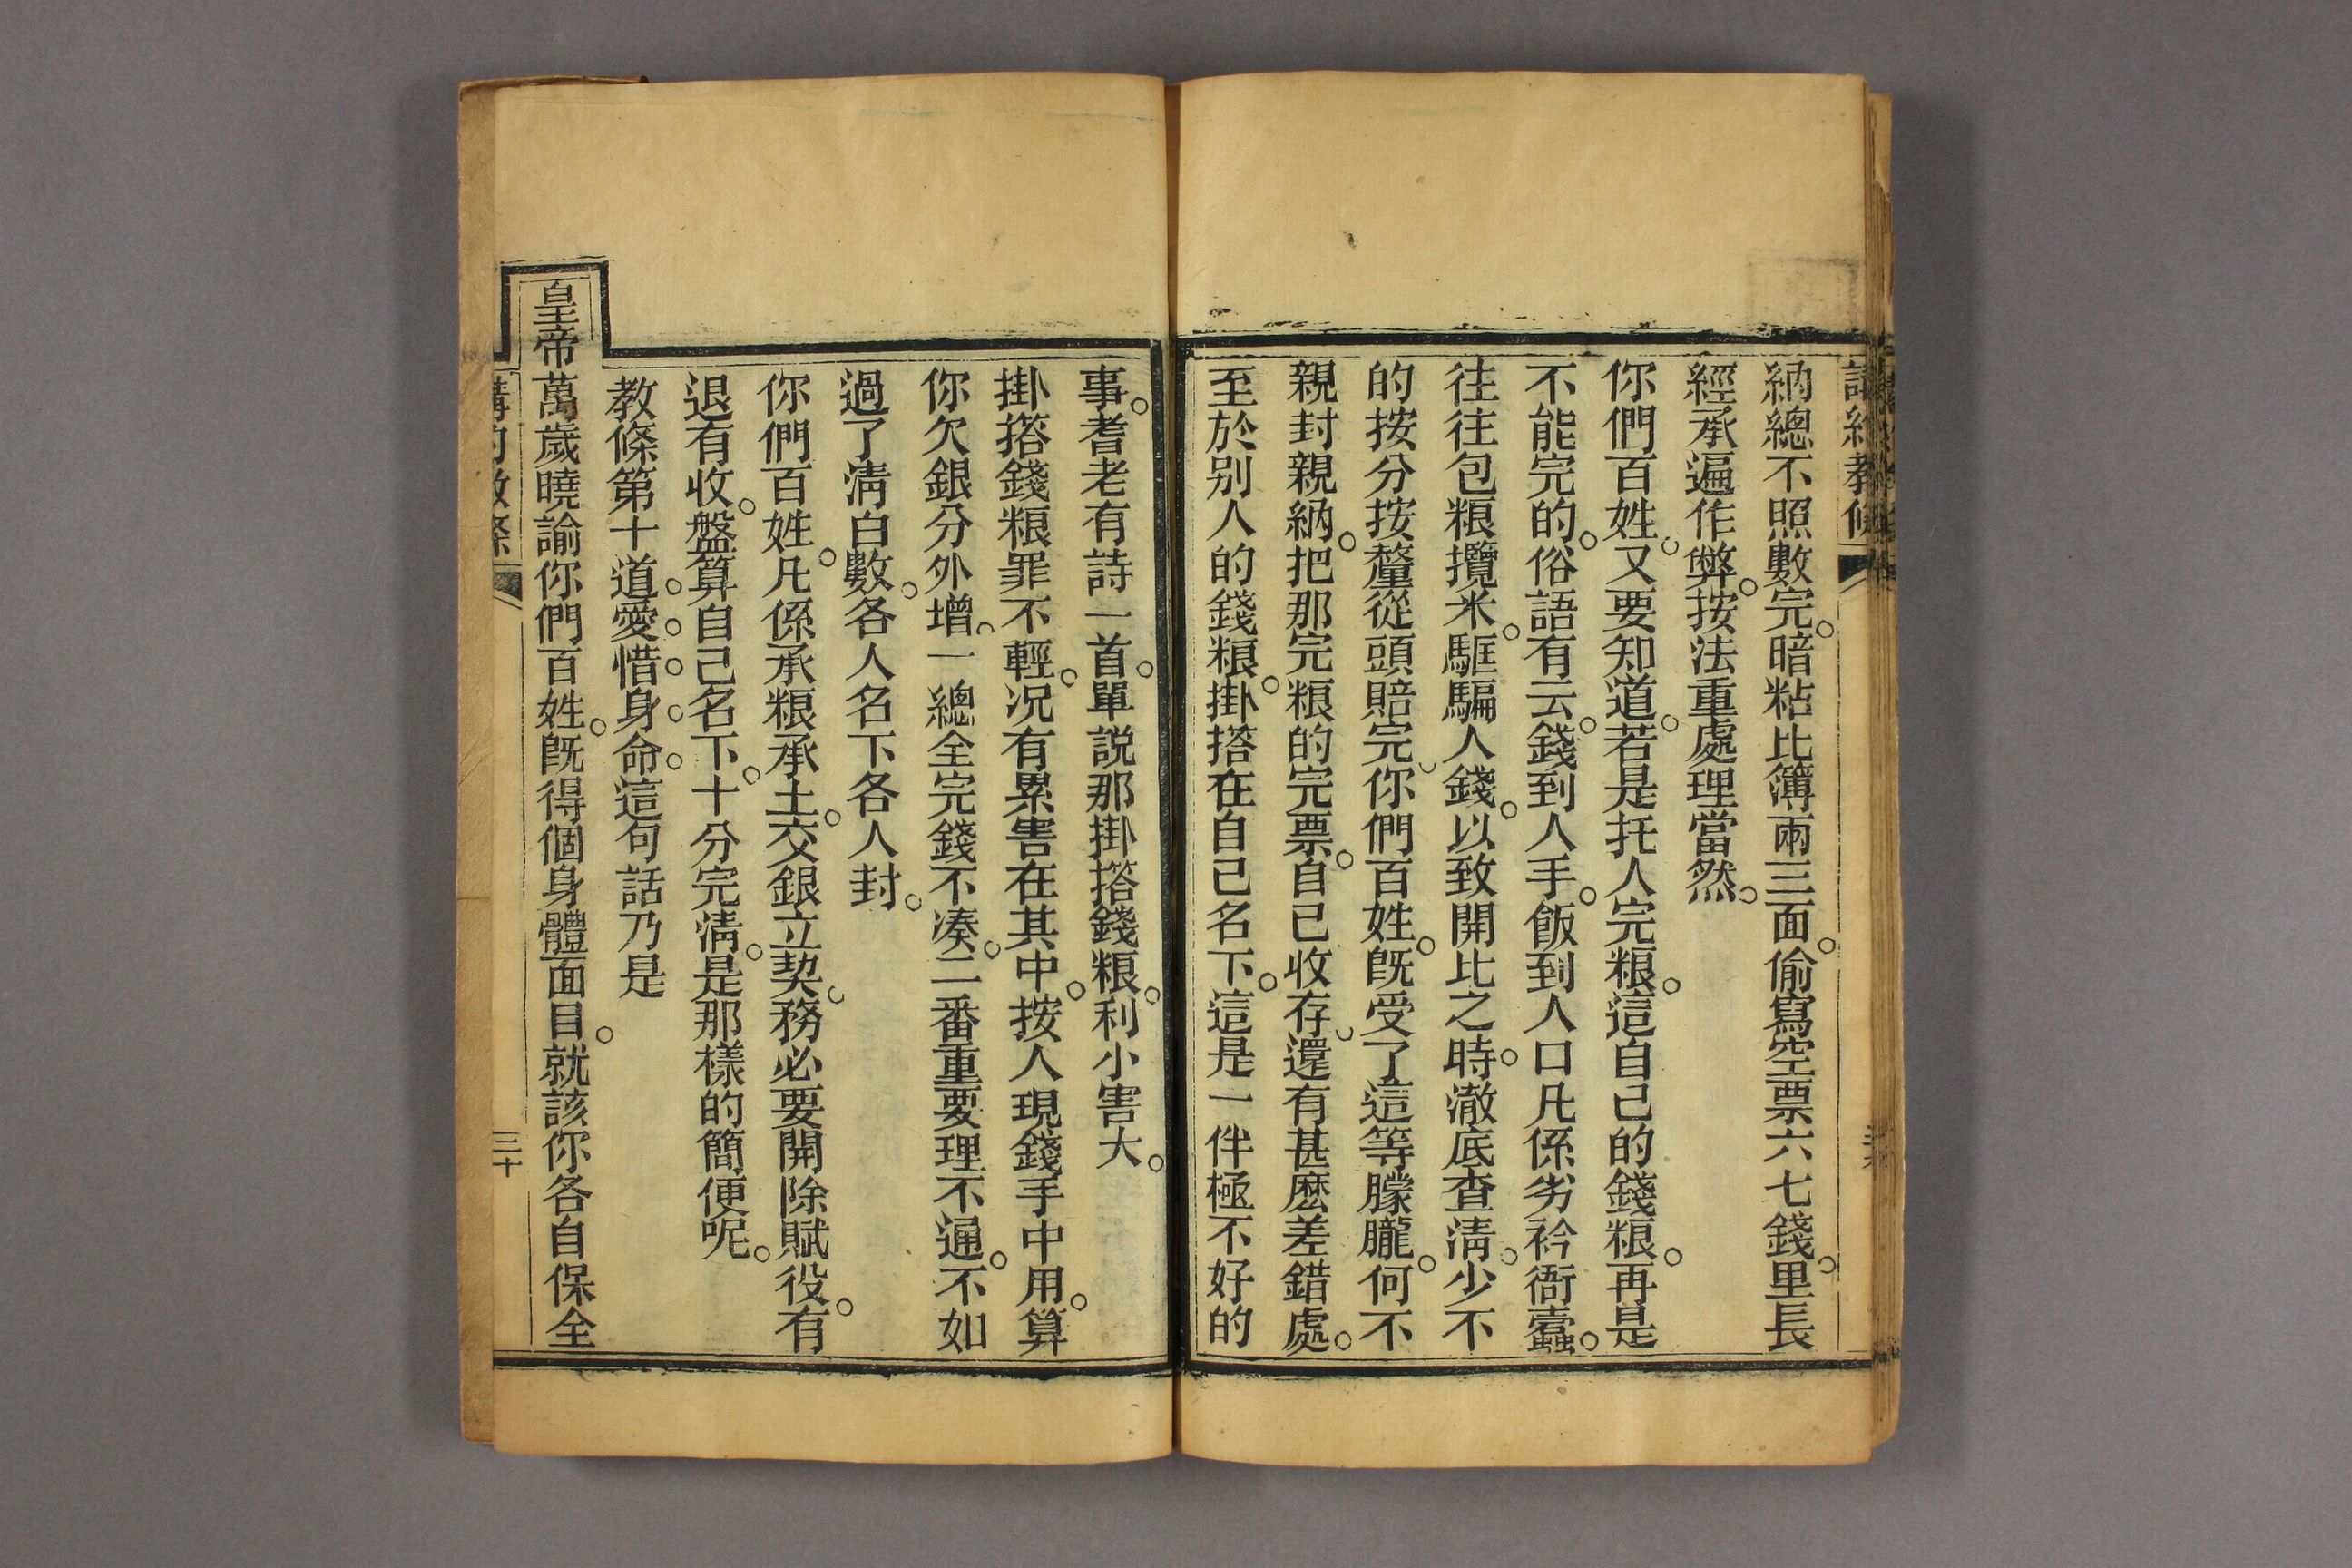 納總不照數完。暗粘比簿兩三面。偷寫空票六七錢。里長
經承遍作弊。按法重處理當然。
你們百姓。又要知道。若是托人完粮。這自己的錢粮。再是
不能完的。俗語有云。錢到人手。飯到人口凡係劣衿衙蠹。
往往包粮攬米。䮫騙人錢。以致開比之時。澈底查淸。少不
的按分按釐從頭賠完。你們百姓。既受了這等朦朧。何不
親封親納。把那完粮的完票。自己收存。還有甚麽差錯處。
至於别人的錢粮。掛撘在自己名下。這是一件極不好的
事。耆老有詩一首。單說那掛撘錢粮。利小害大。
掛撘錢粮罪不輕。况有累害在其中。按人現錢手中用。算
你欠銀分外增。一總全完錢不凑。二番重要理不通。不如
過了淸白數。各人名下各人封。
你們百姓。凡係承粮承土。交銀立契。務必要開除賦役。有
退有收。盤算自己名下。十分完淸。是那樣的簡便呢。
教條第十道。愛。惜。身。命。這句話乃是
皇帝萬歲曉諭你們百姓。既得個身體面目。就該你各自保全
三十